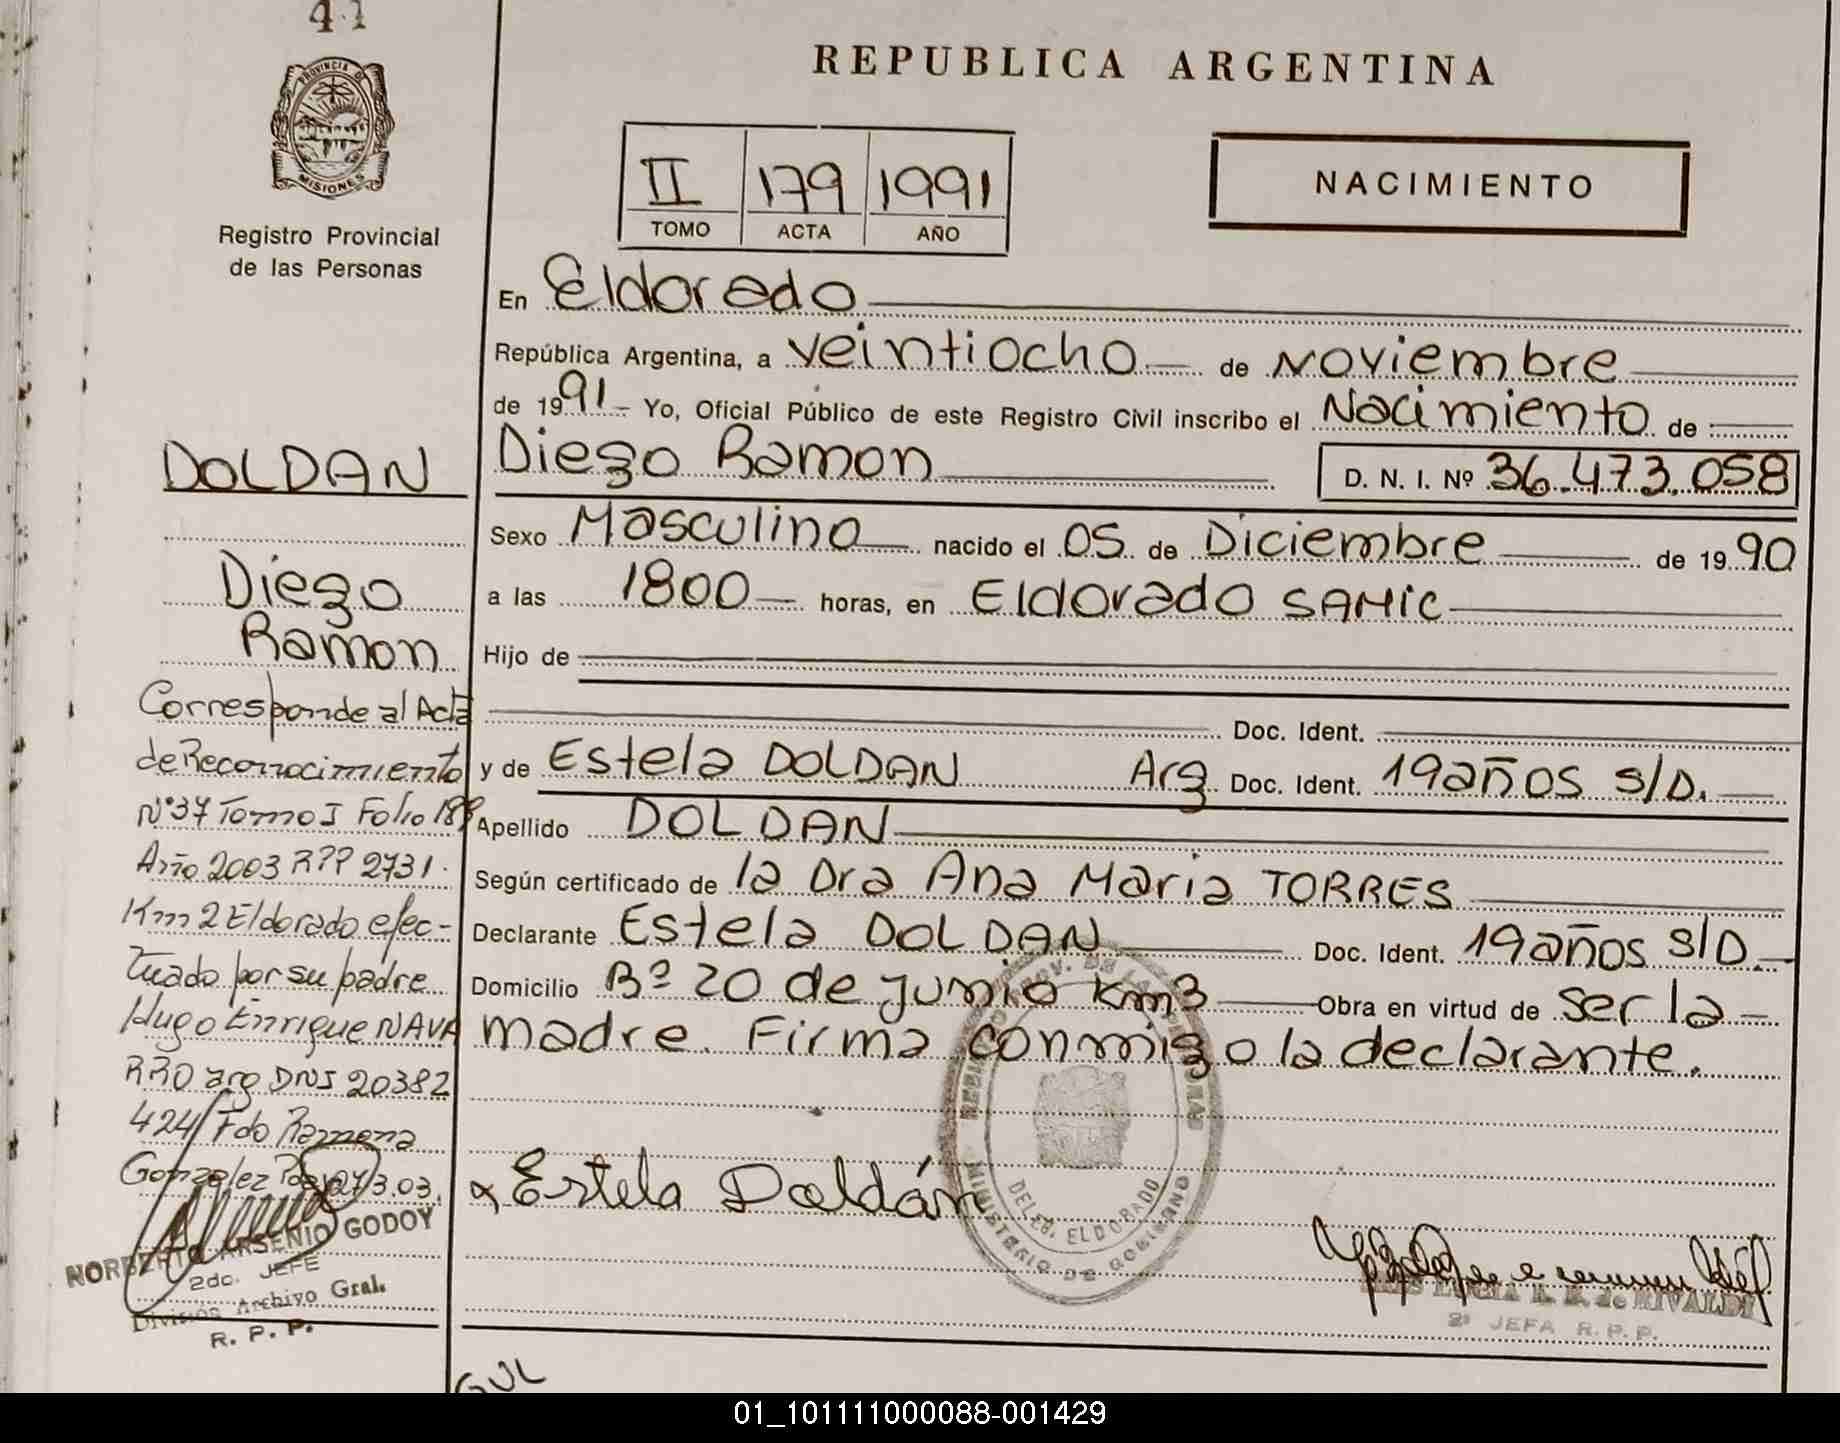 41
PROVINCIA DE
MISIONES
Registro Provincial
de las Personas
REPUBLICA ARGENTINA
II 179 1991
TOMO ACTA AÑO
NACIMIENTO
En Eldorado
República Argentina, a veintiocho de Noviembre
de 1991 Yo, Oficial Público de este Registro Civil inscribo el Nacimiento de
Diego Ramon D. N. I. Nº 36.473.058
Sexo Masculino nacido el 05 de Diciembre de 1990
a las 1800 horas, en Eldorado SAMIC
Hijo de
Doc. Ident.
y de Estela DOLDAN Arg. Doc. Ident. 19 años S/D.
Apellido DOLDAN
Según certificado de la Dra Ana Maria TORRES
Declarante Estela DOLDAN Doc. Ident. 19 años S/D.
Domicilio Bº 20 de junio Km3 Obra en virtud de ser la
madre. Firma conmigo la declarante.
Estela Doldán
DELEG. ELDORADO
MINISTERIO DE GOBIERNO
de RIVALDI
2ª JEFA R. P. P.
DOLDAN
Diego
Ramon
Corresponde al Acta
de Reconocimiento
Nº 37 Tomo I Folio 189
Año 2003 RPP 2731.
Km 2 Eldorado efec-
tuado por su padre
Hugo Enrique NAVA
RRO arg DNI 20382
424/ Fdo Ramona
Gonzalez 27/3.03.
NORBERTO ARSENIO GODOY
2do. JEFE
División Archivo Gral.
R. P. P.
GUL
01_101111000088-001429